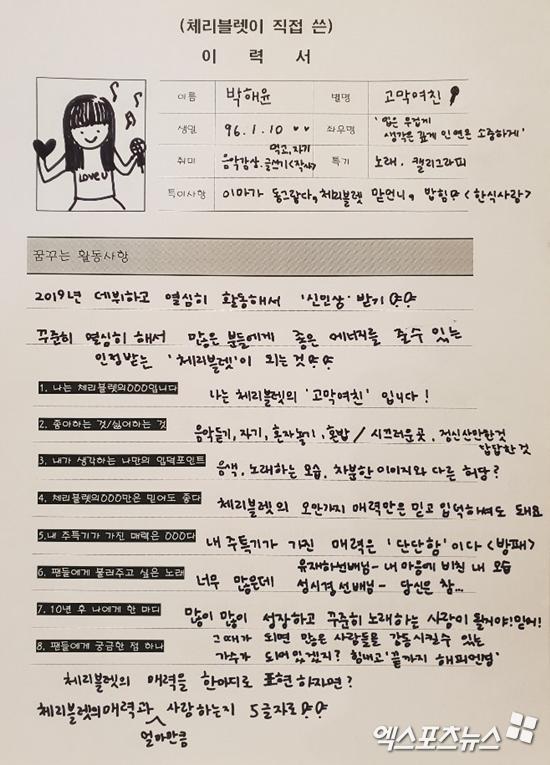 (체리블렛이 직접 쓴)
이 력 서
이름 박해윤 별명 고막여친
생일 96.1.10 좌우명 '입은 무겁게 생각은 깊게 인연은 소중하게'
LOVE U
취미 먹고, 자기 음악감상. 글쓰기<작사> 특기 노래, 캘리그라피
특이사항 이마가 동그랗다, 체리블렛 맏언니, 밥힘 <한식사랑>
꿈꾸는 활동사항
2019년 데뷔하고 열심히 활동해서 '신인상' 받기
꾸준히 열심히 해서 많은 분들에게 좋은 에너지를 줄 수 있는
인정받는 '체리블렛'이 되는것
1. 나는 체리블렛의OOO입니다 나는 체리블렛의 '고막여친' 입니다!
2. 좋아하는 것/싫어하는 것 음악듣기, 자기, 혼자놀기, 혼밥 / 시끄러운곳. 정신산만한것 답답한것
3. 내가 생각하는 나만의 입덕포인트 음색, 노래하는 모습, 차분한 이미지와 다른 허당?
4. 체리블렛의OOO만은 믿어도 좋다 체리블렛의 오만가지 매력만은 믿고 입덕하셔도 돼요
5.내 주특기가 가진 매력은 OOO다 내 주특기가 가진 매력은 '단단함' 이다 <방패>
6. 팬들에게 불러주고 싶은 노래 너무 많은데 유재하선배님 - 내 마음에 비친 내 모습
성시경선배님 - 당신은 참...
7. 10년 후 나에게 한 마디 많이 많이 성장하고 꾸준히 노래하는 사람이 될거야! 믿어!
그때가 되면 많은 사람들을 감동시킬수 있는
8. 팬들에게 궁금한 점 하나 가수가 되어있겠지? 힘내고 '끝까지 해피엔딩'
체리블렛의 매력을 한마디로 표현하자면?
체리블렛의 매력과 얼마만큼 사랑하는지 5글자로
엑스포츠뉴스